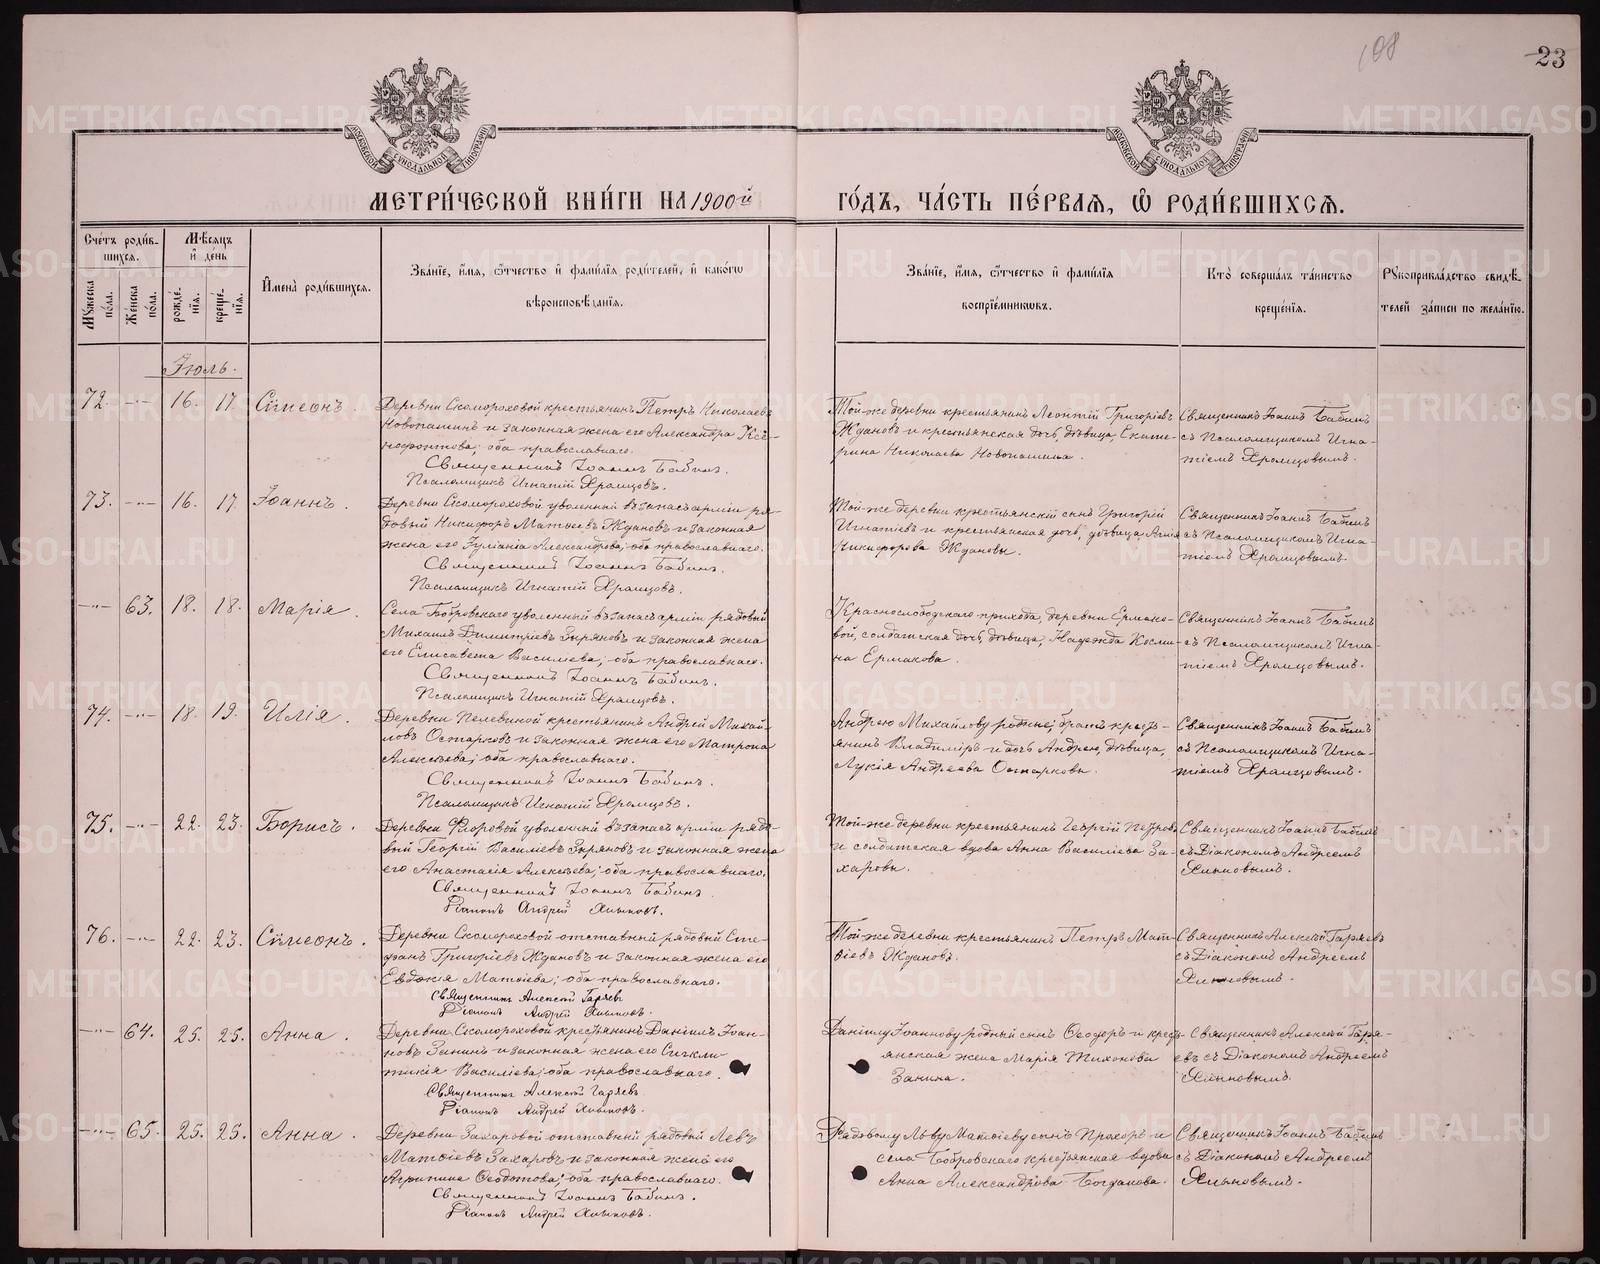 108
23
МОСКОВСКОЙ СѴНОДАЛЬНОЙ ТИПОГРАФІИ
МОСКОВСКОЙ СѴНОДАЛЬНОЙ ТИПОГРАФІИ
МЕТРИ́ЧЕСКОЙ КНИ́ГИ НА 1900й
ГО́ДЪ, ЧА́СТЬ ПЕ́РВАѦ, Ѽ РОДИ́ВШИХСѦ.
Сче́тъ роди́в-
шихсѧ.
Мꙋ́жеска по́ла.
Же́нска по́ла.
Мѣ́сѧцъ
и҆ де́нь
рожде́-нїѧ.
креще́-нїѧ.
И҆мена̀ роди́вшихсѧ.
Зва́нїе, и҆́мѧ, ѻ҆́тчество и҆ фами́лїѧ роди́телей, и҆ како́гѡ
вѣроисповѣ́данїѧ.
Зва́нїе, и҆́мѧ, ѻ҆́тчество и҆ фами́лїѧ
воспрїе́мникѡвъ.
Кто̀ соверша́лъ та́инство
креще́нїѧ.
Рꙋкоприкла́дство свидѣ́-
телей за́писи по жела́нїю.
Іюль.
72. -"- 16. 17. Сѵмеонъ.
Деревни Скомороховой крестьянинъ Петръ Николаевъ
Новопашинъ и законная жена его Александра Ксе-
нофонтова; оба православнаго.
Священникъ Іоаннъ Бабинъ.
Псаломщикъ Игнатій Храмцовъ.
Той-же деревни крестьянинъ Леонтій Григоріевъ
Ждановъ и крестьянская дочь, дѣвица, Екате-
рина Николаева Новопашина.
Священникъ Іоаннъ Бабинъ
съ Псаломщикомъ Игна-
тіемъ Храмцовымъ.
73. -"- 16. 17. Іоаннъ.
Деревни Скомороховой уволенный въ запасъ арміи ря-
довый Никифоръ Матѳіевъ Ждановъ и законная
жена его Іуліанія Александрова; оба православнаго.
Священникъ Іоаннъ Бабинъ.
Псаломщикъ Игнатій Храмцовъ.
Той-же деревни крестьянскій сынъ Григорій
Игнатіевъ и крестьянская дочь, дѣвица
Никифорова Ждановы.
Священникъ Іоаннъ Бабинъ
съ Псаломщикомъ Игна-
тіемъ Храмцовымъ.
-"- 63. 18. 18. Марія.
Села Бобровскаго уволенный въ запасъ арміи рядовый
Михаилъ Димитріевъ Зыряновъ и законная жена
его Елисавета Василіева; оба православнаго.
Священникъ Іоаннъ Бабинъ.
Псаломщикъ Игнатій Храмцовъ.
Краснослободскаго прихода, деревни Ермако-
вой, солдатская дочь, дѣвица, Надежда Косми-
на Ермакова.
Священникъ Іоаннъ Бабинъ
съ Псаломщикомъ Игна-
тіемъ Храмцовымъ.
74. -"- 18. 19. Илія.
Деревни Пелевиной крестьянинъ Андрей Михай-
ловъ Остарковъ и законная жена его Матрона
Алексѣева; оба православнаго.
Священникъ Іоаннъ Бабинъ.
Псаломщикъ Игнатій Храмцовъ.
Андрею Михайлову родные; братъ кресть-
янинъ Владиміръ и дочь Андрею, дѣвица,
Лукія Андреева Остарковы.
Священникъ Іоаннъ Бабинъ
съ Псаломщикомъ Игна-
тіемъ Храмцовымъ.
75. -"- 22. 23. Борисъ.
Деревни Флоровой уволенный въ запасъ арміи рядо-
вый Георгій Василіевъ Зыряновъ и законная жена
его Анастасія Алексѣева; оба православнаго.
Священникъ Іоаннъ Бабинъ
Діаконъ Андрей Хлыновъ.
Той-же деревни крестьянинъ Георгій Петровъ
и солдатская вдова Анна Василіева За-
харовы.
Священникъ Іоаннъ Бабинъ
съ Діакономъ Андреемъ
Хлыновымъ.
76. -"- 22. 23. Сѵмеонъ.
Деревни Скомороховой отставный рядовый Сте-
фанъ Григоріевъ Ждановъ и законная жена его
Евдокія Матѳіева; оба православнаго.
Священникъ Алексій Гаряевъ
Діаконъ Андрей Хлыновъ.
Той-же деревни крестьянинъ Петръ Мат-
ѳіевъ Ждановъ.
Священникъ Алексій Гаряевъ
съ Діакономъ Андреемъ
Хлыновымъ.
-"- 64. 25. 25. Анна.
Деревни Скомороховой крестьянинъ Даніилъ Іоан-
новъ Занинъ и законная жена его Синкли-
тикія Василіева; оба православнаго.
Священникъ Алексій Гаряевъ
Діаконъ Андрей Хлыновъ.
Даніилу Іоаннову родный сынъ Ѳеодоръ и кресть-
янская жена Марія Тихонова
Занина.
Священникъ Алексій Гаря-
евъ съ Діакономъ Андреемъ
Хлыновымъ.
-"- 65. 25. 25. Анна.
Деревни Захаровой отставный рядовый Левъ
Матѳіевъ Захаровъ и законная жена его
Агрипина Ѳеодотова; оба православнаго.
Священникъ Іоаннъ Бабинъ.
Діаконъ Андрей Хлыновъ.
Рядовому Льву Матѳіеву сынъ Прохоръ и
села Бобровскаго крестьянская вдова
Анна Александрова Богданова.
Священникъ Іоаннъ Бабинъ
съ Діакономъ Андреемъ
Хлыновымъ.
METRIKI.GASO-URAL.RU